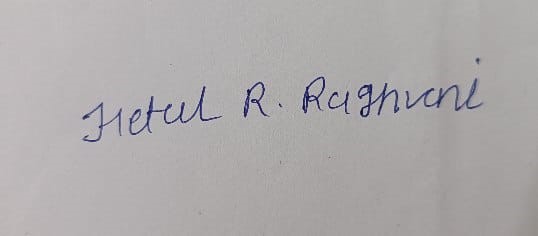 Hetul R. Raghvani